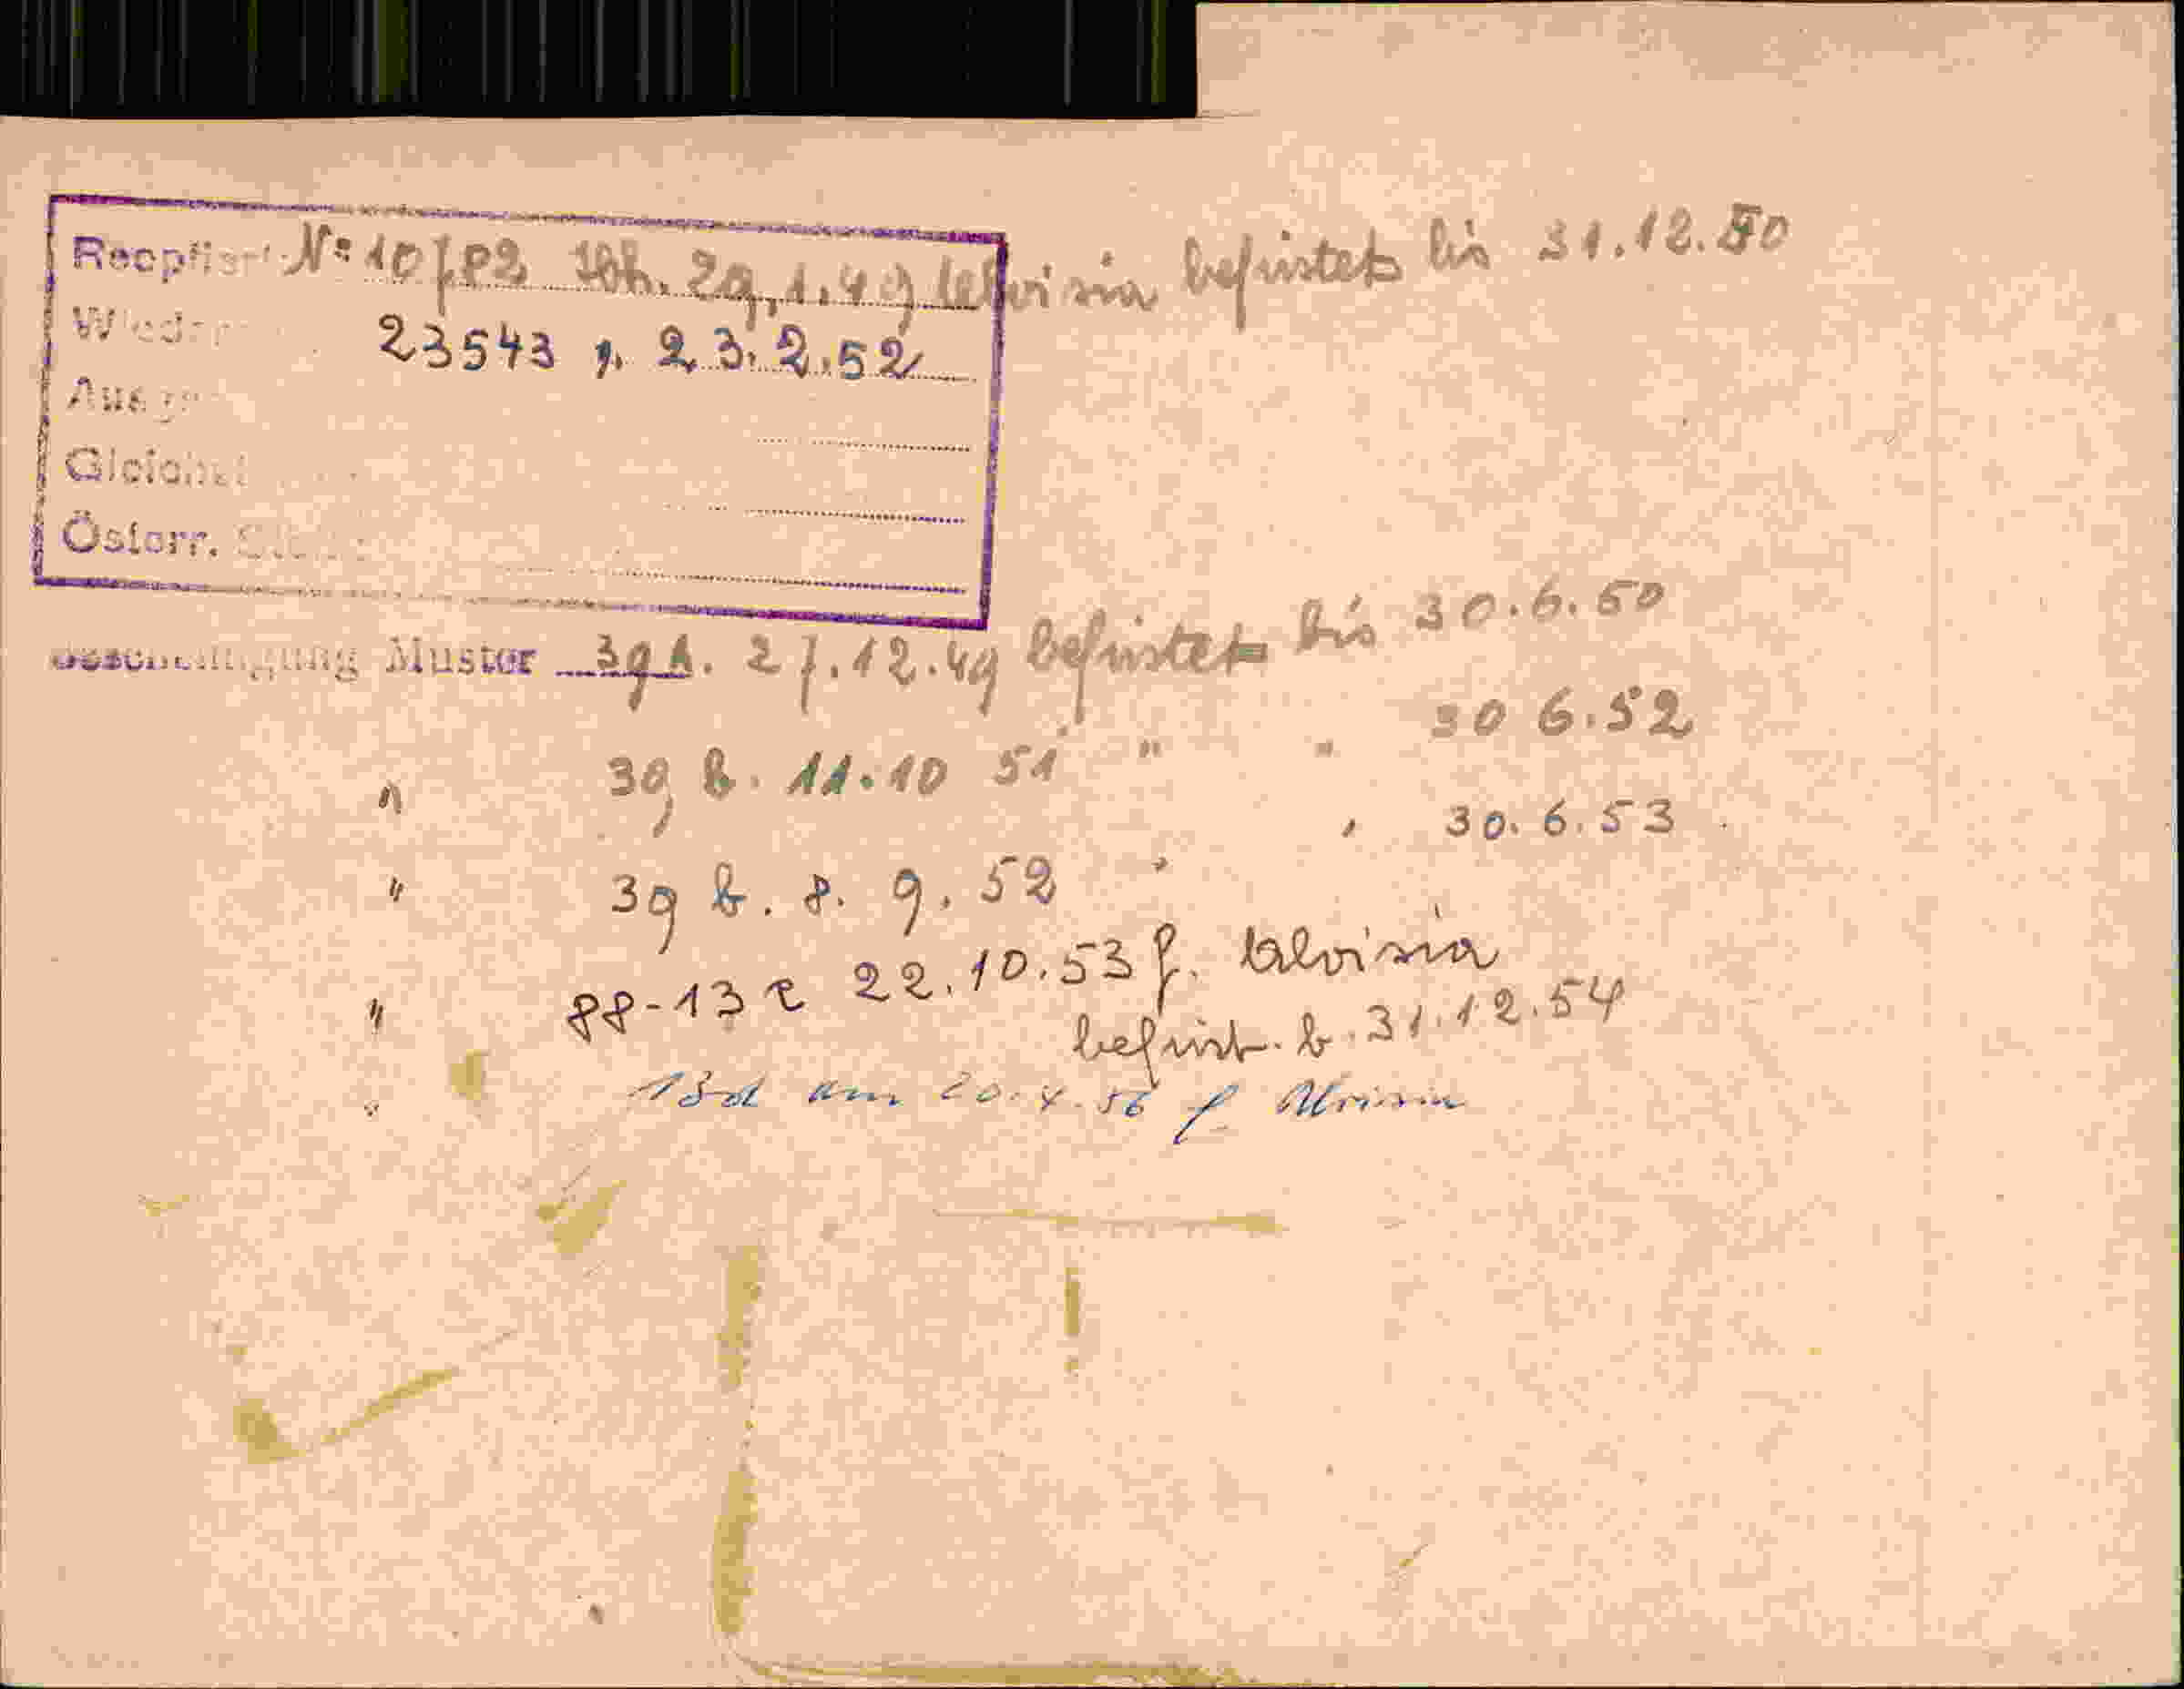 Reopfiert: № 10782 29.1.49 Aloisia befristet bis 31.12.50
23543 v. 23.2.52
Österr.
Bescheinigung Muster 39 b. 27.12.49 befristet bis 30.6.50
" 39 b. 11.10 51 " " 30 6.52
" 39 b. 8. 9. 52 " " 30.6.53
" 88-13 e 22.10.53 f. Aloisia
befrist. b. 31.12.54
" 13d am 20.4.56 f. Aloisia